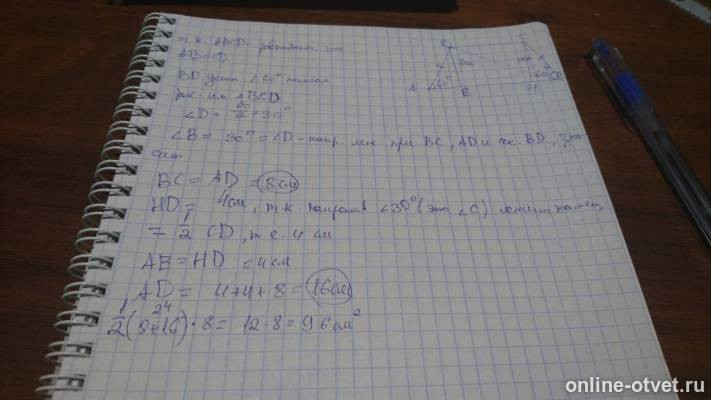 т.к. ABCD - равнобедр., то
AB=CD
BD делит ∠60° пополам
∠D = 60/2 = 30°
∠B = 30° = ∠D - накр. леж. при BC, AD и сек. BD, зна-
чит
BC = AD = 8см
HD = 4см, т.к. напротив ∠30° (это ∠C) лежит катет,
= 1/2 CD, т.е. 4 см
AE = HD = 4см
AD = 4+4+8 = 16см
1/2(8+16)·8 = 12·8 = 96см²
24
B C
A 60° E H
online-otvet.ru